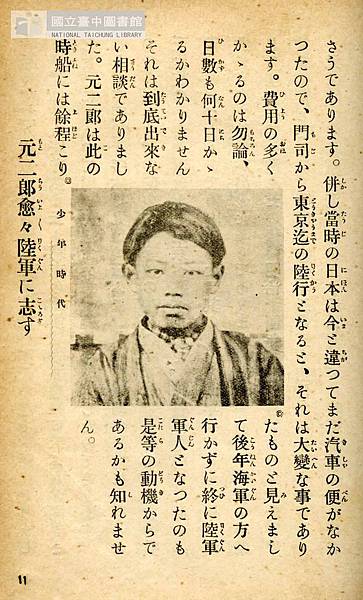 國立臺中圖書館
NATIONAL TAICHUNG LIBRARY
さうであります。併し當時の日本は今と違つてまだ汽車の便がなか
つたので、門司から東京迄の陸行となると、それは大變な事であり
ます。費用の多く
かゝるのは勿論、
日數も何十日かゝ
るかわかりません
それは到底出來な
い相談でありまし
た。元二郎は此の
時船には餘程こり
少年時代
たものと見えまし
て後年海軍の方へ
行かずに終に陸軍
軍人となつたのも
是等の動機からで
あるかも知れませ
ん。
元二郎愈々陸軍に志す
11